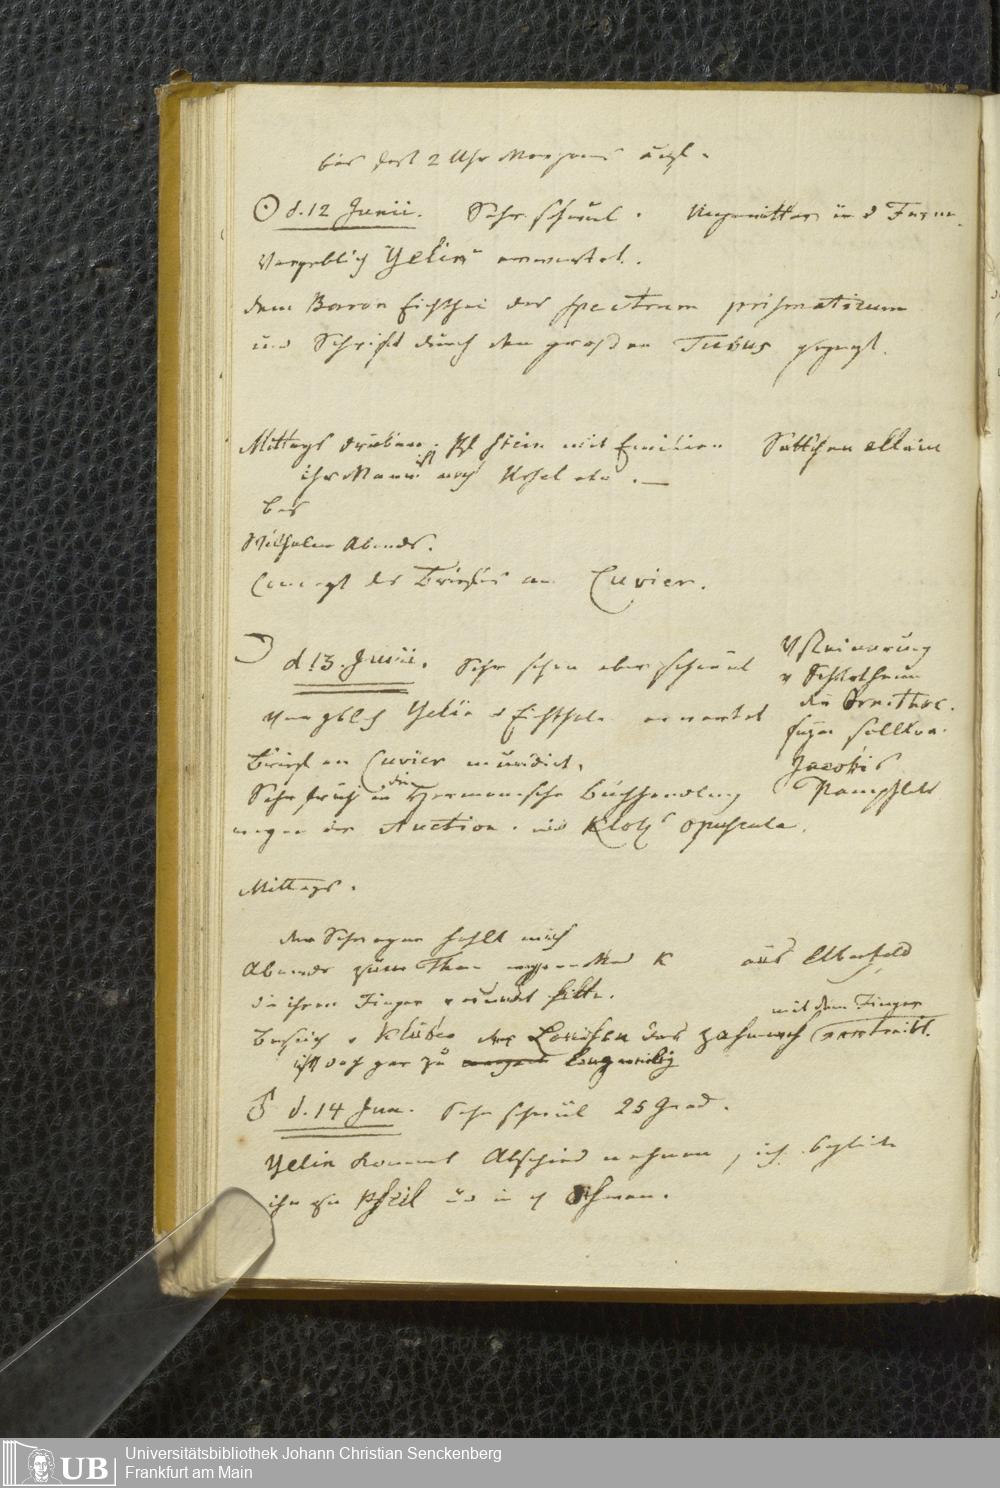 bis fast 2 Uhr Morgens aufgl.
☉ d. 12 Junii. Sehr schwül. Ungewitter in d Ferne.
Vergeblich Yelin erwartet.
dem Baron Eichthal das Spectrum prismaticum
und Schrift durch den großen Tubus gezeigt.
Mittags drüben. Stein mit Emilien Settchen allein
ihr Mann ist nach Ursel
bes
Wilhelm Abends.
Concept des Briefes an Cuvier.
☽ d 13. Junii. Sehr schön aber schwül
vergblich Yelin u Eichthal erwartet
Brief an Cuvier mundirt.
Sehr früh in die Hermannsche Buchhandlung
wegen der Auction. und Klotz opuscula.
V Steinerung
v Schlotheim
die Ornithoc.
seyn sollten.
Jacobis
Pamphlet
Mittags.
der Schwager holt mich
Abends zum Thee K aus Elberfeld
die ihren Finger verwundet hatte.
Besuch v Klüber der Louisen das Zahnweh mit dem Finger vertreibt.
ist doch gar zu langweilig
♂ d. 14 Jun. Sehr schwül 25 Grad.
Yelin kommt Abschied nehmen, ich begleite
ihn zu Pfeil und in d Schwan.
UB Universitätsbibliothek Johann Christian Senckenberg
Frankfurt am Main